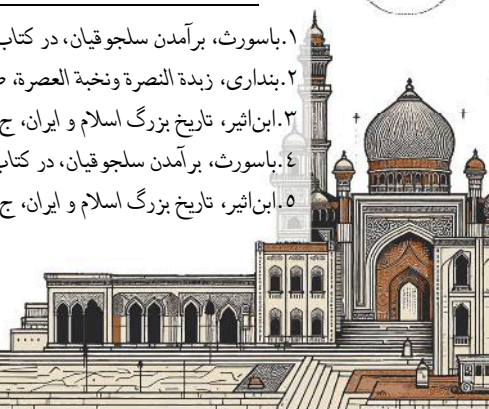 ۱.باسورث، برآمدن سلجوقیان، در کتاب
۲.بنداری، زبدة النصرة ونخبة العصرة، ص
۳.ابن‌اثیر، تاریخ بزرگ اسلام و ایران، ج
٤.باسورث، برآمدن سلجوقیان، در کتاب
۵.ابن‌اثیر، تاریخ بزرگ اسلام و ایران، ج